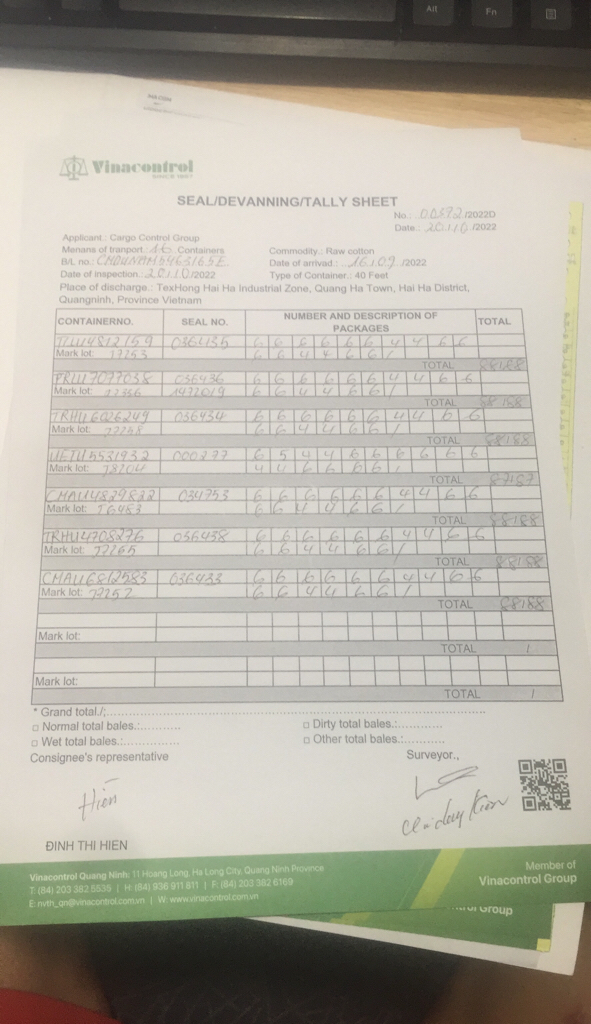 Alt
Fn
Vinacontrol
SEAL/DEVANNING/TALLY SHEET
No.: 00592/2022D
Date: 20/10/2022
Applicant: Cargo Control Group
Menans of tranport: 16 Containers
Commodity: Raw cotton
B/L no.: CMDUNAM5463165E
Date of arrivad: 16/09/2022
Date of inspection: 20/10/2022
Type of Container: 40 Feet
Place of discharge: TexHong Hai Ha Industrial Zone, Quang Ha Town, Hai Ha District,
Quangninh, Province Vietnam
CONTAINERNO. SEAL NO. NUMBER AND DESCRIPTION OF PACKAGES TOTAL
036435 6 6 6 6 6 6 4 4 6 6
Mark lot: 77253 6 6 4 4 6 6 /
TOTAL 88/88
FRLU7077038 036436 6 6 6 6 6 6 4 4 6 6
Mark lot: 6 6 4 4 6 6 /
TOTAL 88/88
TRHU6026249 036434 6 6 6 6 6 6 4 4 6 6
Mark lot: 6 6 4 4 6 6 /
TOTAL 88/88
UETU5531932 000277 6 5 4 4 6 6 6 6 6 6
Mark lot: 78204 4 4 6 6 6 6 /
TOTAL 87/87
CMAU4829822 034753 6 6 6 6 6 6 4 4 6 6
Mark lot: 76483 6 6 4 4 6 6 /
TOTAL 88/88
TRHU4708276 036438 6 6 6 6 6 6 4 4 6 6
Mark lot: 77265 6 6 4 4 6 6 /
TOTAL 88/88
036433 6 6 6 6 6 6 4 4 6 6
Mark lot: 77252 6 6 4 4 6 6 /
TOTAL 88/88
Mark lot:
TOTAL /
Mark lot:
TOTAL /
* Grand total./:
□ Normal total bales.:
□ Dirty total bales.:
□ Wet total bales.:
□ Other total bales.:
Consignee's representative
Surveyor.,
Hiên
ĐINH THI HIEN
Vinacontrol Quang Ninh: 11 Hoang Long, Ha Long City, Quang Ninh Province
T: (84) 203 382 5535 | H: (84) 936 911 811 | F: (84) 203 382 6169
E: nvth_qn@vinacontrol.com.vn | W: www.vinacontrol.com.vn
Member of
Vinacontrol Group
Group